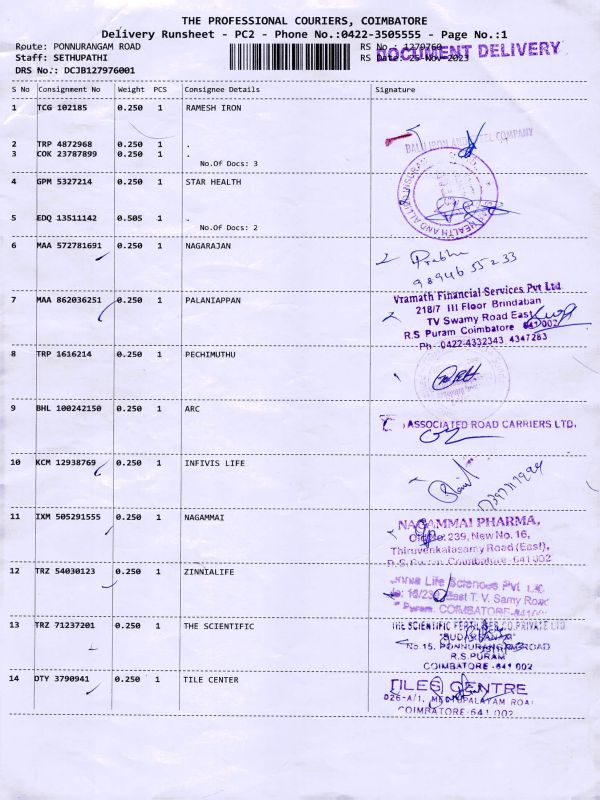 THE PROFESSIONAL COURIERS, COIMBATORE
Delivery Runsheet - PC2 - Phone No.:0422-3505555 - Page No.:1
Route: PONNURANGAM ROAD
RS No.: 1279760
DOCUMENT DELIVERY
Staff: SETHUPATHI
RS Date: 25-Nov-2023
DRS No.: DCJB127976001
S No Consignment No Weight PCS Consignee Details Signature
1 TCG 102185 0.250 1 RAMESH IRON
2 TRP 4872968 0.250 1 .
3 COK 23787899 0.250 1 .
No.Of Docs: 3
4 GPM 5327214 0.250 1 STAR HEALTH
5 EDQ 13511142 0.505 1 .
No.Of Docs: 2
6 MAA 572781691 0.250 1 NAGARAJAN
Prabhu
98946 55233
7 MAA 862036251 0.250 1 PALANIAPPAN
Vramath Financial Services Pvt Ltd
218/7 III Floor Brindaban
TV Swamy Road East
R.S Puram Coimbatore 641002
Ph 0422-4332343 4347283
8 TRP 1616214 0.250 1 PECHIMUTHU
9 BHL 100242150 0.250 1 ARC
ASSOCIATED ROAD CARRIERS LTD.
10 KCM 12938769 0.250 1 INFIVIS LIFE
11 IXM 505291555 0.250 1 NAGAMMAI
NAGAMMAI PHARMA,
Old No: 239, New No. 16,
Thiruvenkatasamy Road (East),
R.S. Puram Coimbatore 641 002
12 TRZ 54030123 0.250 1 ZINNIALIFE
Life Sciences Pvt Ltd
East T. V. Samy Road
Puram. COIMBATORE-
13 TRZ 71237201 0.250 1 THE SCIENTIFIC
THE SCIENTIFIC FERTILISER CO.PRIVATE LTD
No.15, PONNURANGAM ROAD
R.S.PURAM
COIMBATORE-641 002
14 OTY 3790941 0.250 1 TILE CENTER
TILES CENTRE
METTUPALAYAM ROAD
COIMBATORE-641 002